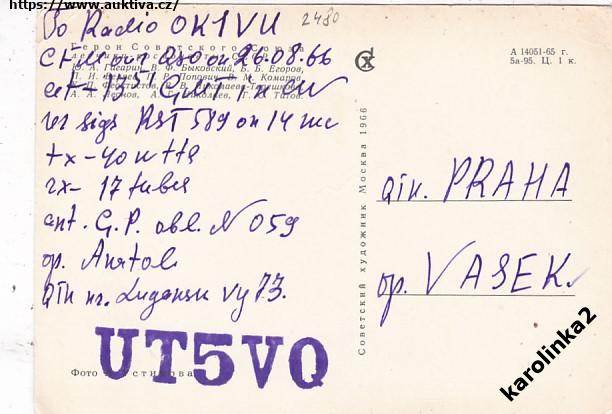 https://www.auktiva.cz/
To Radio OK1VU
2480
Герои Советского Союза
Cfm our QSO on 26.08.66
Ю. А. Гагарин, В. Ф. Быковский, Б. Б. Егоров,
П. И. Беляев, П. Р. Попович, В. М. Комаров,
at 1351 GMT in CW
К. П. Феоктистов, В. В. Николаева-Терешкова,
А. А. Леонов, А. Г. Николаев, Г. С. Титов.
ur sigs RST 589 on 14 mc
tx - 40 watts
rx - 17 tubes
ant. G.P. obl. N 059
op. Anatol
QTH nr. Lugansk vy 73.
UT5VQ
Фото
А 14051-65 г.
5а-95. Ц. 1 к.
Советский художник Москва 1966
QTH. PRAHA
op. VASEK.
karolinka2